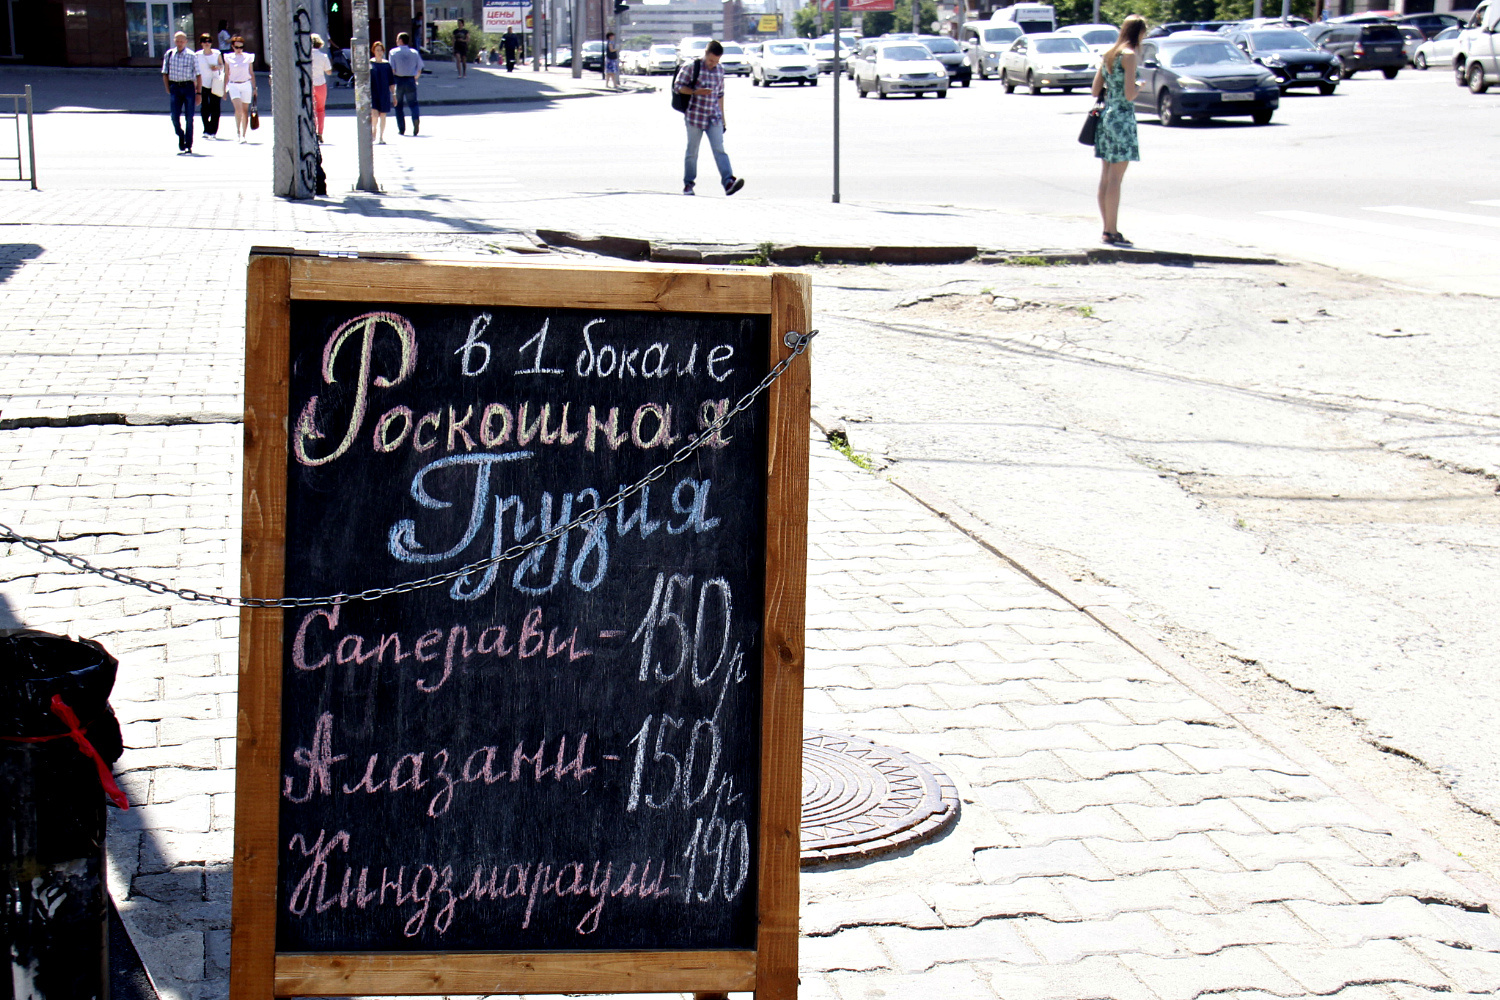 ЦЕНЫ
ПОПОЛАМ
в 1 бокале
Роскошная
Грузия
Саперави - 150р
Алазани - 150р.
Киндзмараули - 190